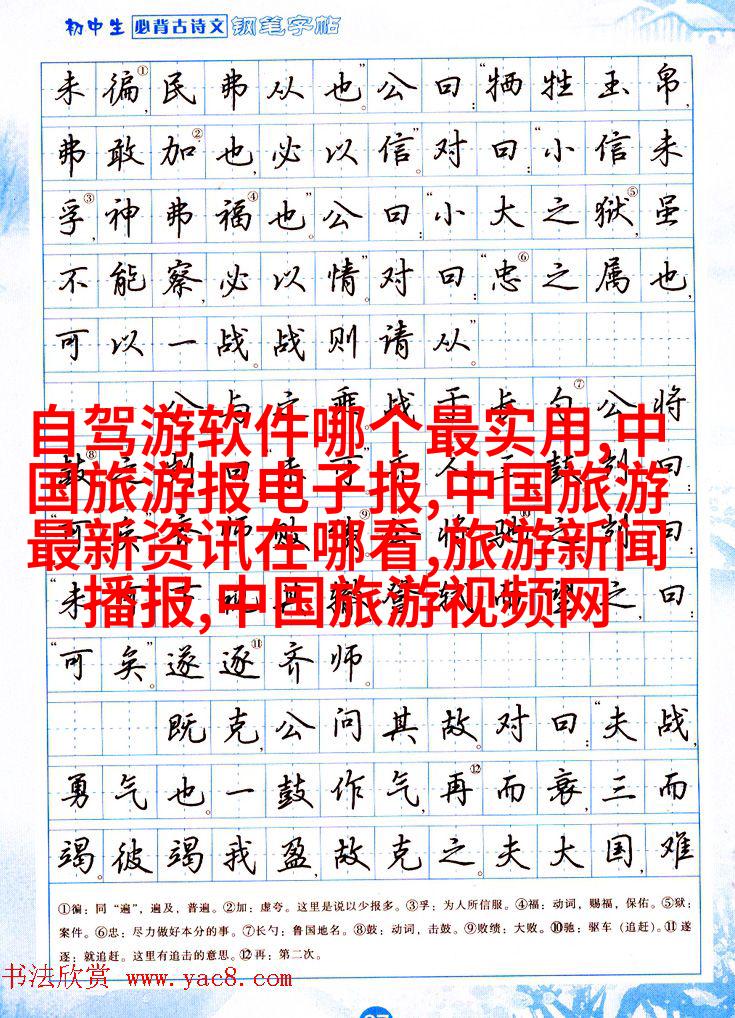 初中生 必背古诗文 钢笔字帖
未徧①，民弗从也。”公曰：“牺牲玉帛，
弗敢加②也，必以信。”对曰：“小信未
孚③，神弗福④也。”公曰：“小大之狱⑤，虽
不能察，必以情。”对曰：“忠⑥之属也，
可以一战。战则请从。”
乘。战于 勺⑦。公将
鼓⑧ 刿曰：
可矣。” 师败 ⑨。公将驰⑩之。刿曰：
“未 之，曰：
自驾游软件哪个最实用,中
国旅游报电子报,中国旅游
最新资讯在哪看,旅游新闻
播报,中国旅游视频网
“可矣。”遂逐⑪齐师。
既克，公问其故。对曰：“夫战，
勇气也。一鼓作气，再⑫而衰，三而
竭。彼竭我盈，故克之。夫大国，难
①徧：同“遍”，遍及，普遍。②加：虚夸。这里是说以少报多。③孚：为人所信服。④福：动词，赐福，保佑。⑤狱：
案件。⑥忠：尽力做好本分的事。⑦长勺：鲁国地名。⑧鼓：动词，击鼓。⑨败绩：大败。⑩驰：驱车（追赶）。⑪遂
逐：就追赶。这里有追击的意思。⑫再：第二次。
书法欣赏 www.yac8.com